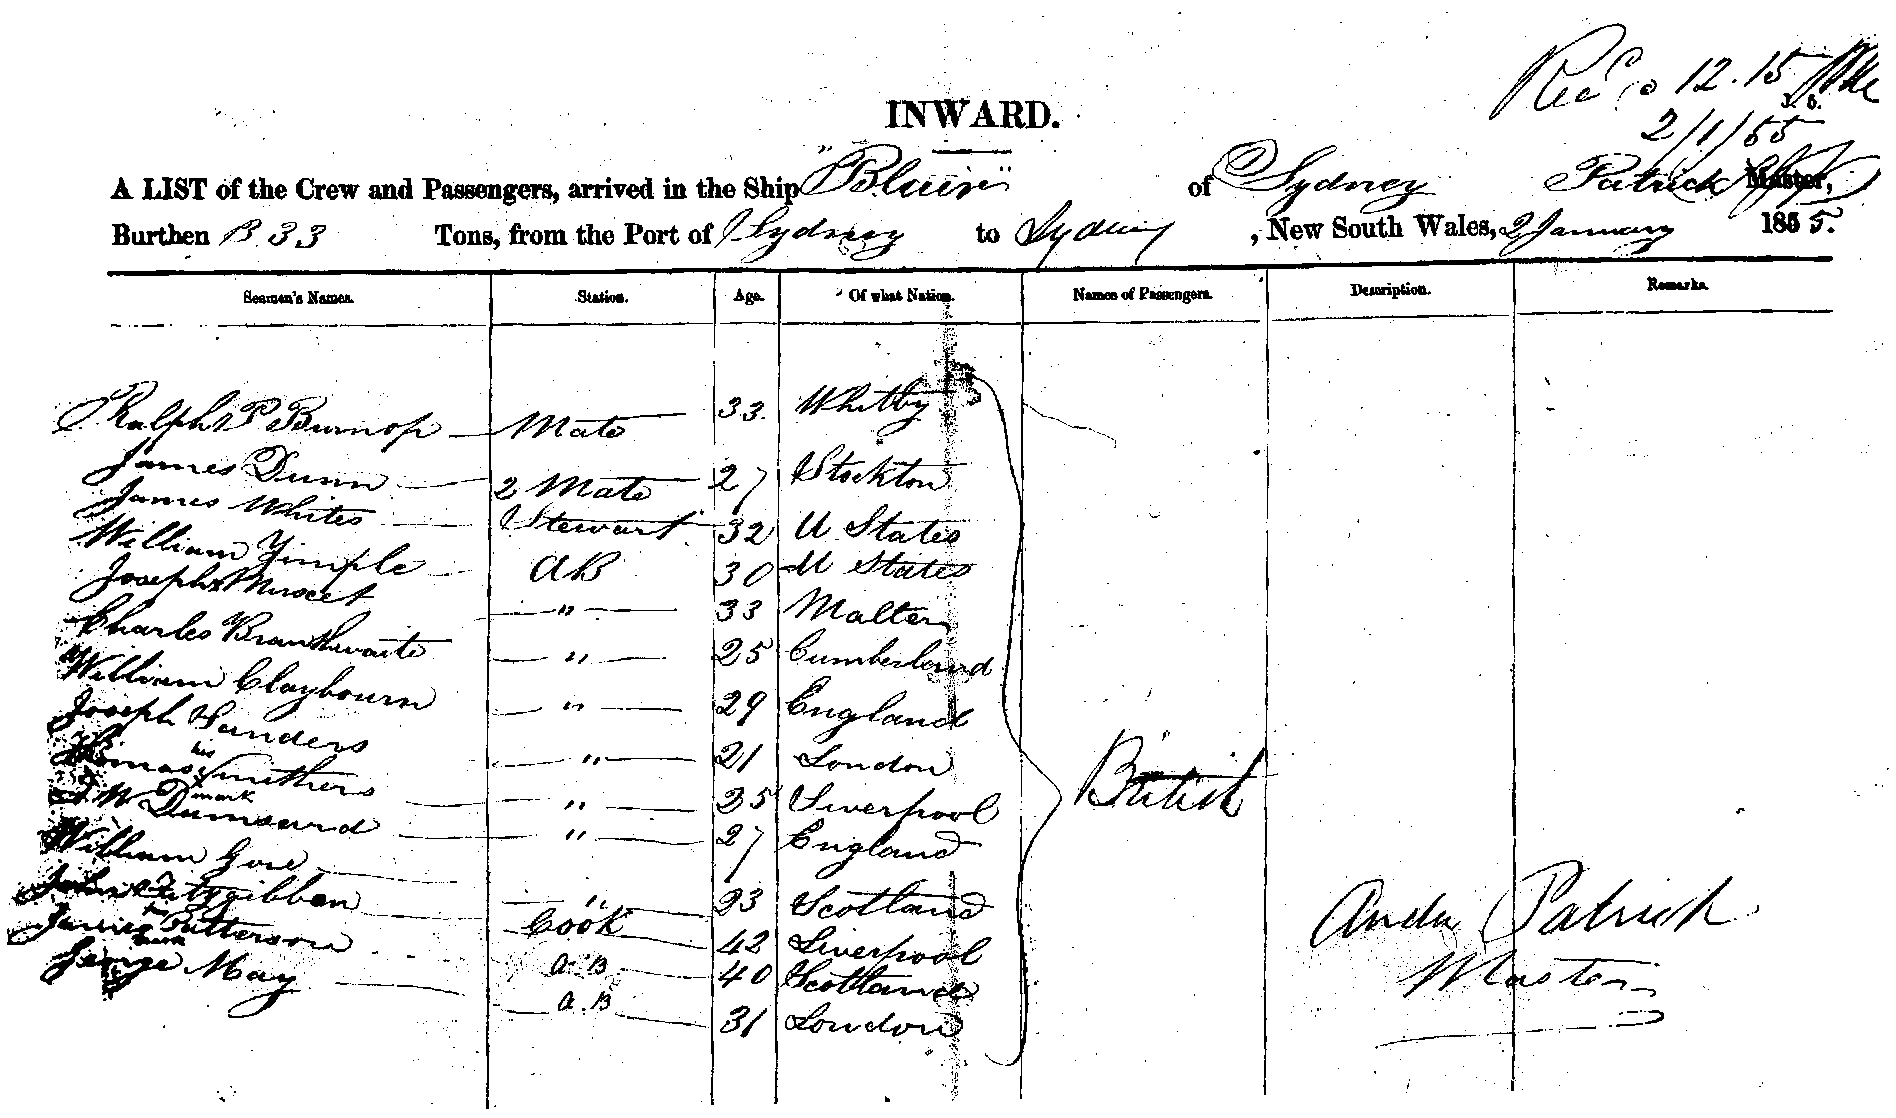 12.15
2/1/55
INWARD.
A LIST of the Crew and Passengers, arrived in the Ship "Bluir" of Sydney Patrick Master,
Burthen B 33 Tons, from the Port of Sydney to Sydney, New South Wales, 2 January 1855.
Seamen's Names. Station. Age. Of what Nation. Names of Passengers. Description. Remarks.
Ralph P Burnop Mate 33 Whitby
James Dunn 2 Mate 27 Stockton
James Whites Stewart 32 U States
William Yimple AB 30 U States
Joseph Muscet " 33 Malter
Charles Branthwaite " 25 Cumberland
William Claybourn " 29 England
Joseph Sanders " 21 London
Thomas his Smithers " 25 Liverpool
mark
Dumsard " 27 England
William Gore " 23 Scotland
John Fitzgibbon Cook 42 Liverpool
James Patterson A.B 40 Scotland
mark
George May A.B 31 London
British
Andw Patrick
Master